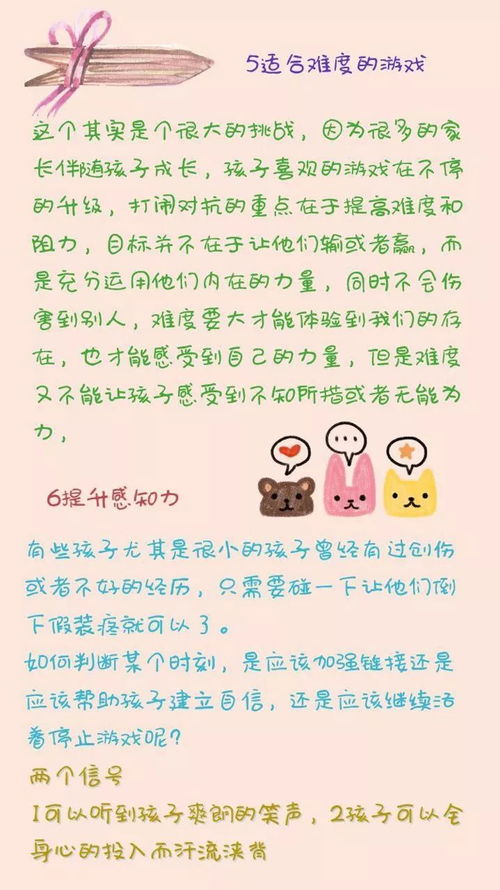 5适合难度的游戏
这个其实是个很大的挑战，因为很多的家
长伴随孩子成长，孩子喜欢的游戏在不停
的升级，打闹对抗的重点在于提高难度和
阻力，目标并不在于让他们输或者赢，而
是充分运用他们内在的力量，同时不会伤
害到别人，难度要大才能体验到我们的存
在，也才能感受到自己的力量，但是难度
又不能让孩子感受到不知所措或者无能为
力，
6提升感知力
有些孩子尤其是很小的孩子曾经有过创伤
或者不好的经历，只需要碰一下让他们倒
下假装疼就可以了。
如何判断某个时刻，是应该加强链接还是
应该帮助孩子建立自信，还是应该继续活
着停止游戏呢？
两个信号
1可以听到孩子爽朗的笑声，2孩子可以全
身心的投入而汗流浃背